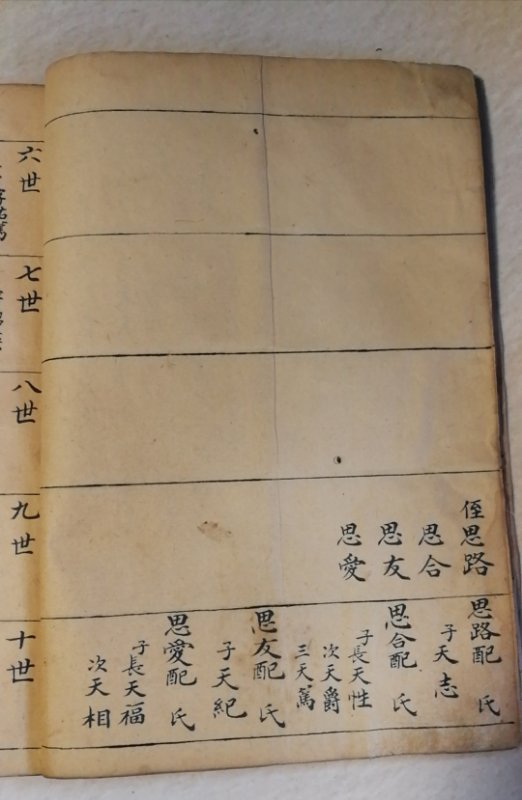 侄思路
思合
思友
思愛
思路配 氏
子天志
思合配 氏
子長天性
次天爵
三天篤
思友配 氏
子天紀
思愛配 氏
子長天福
次天相
六世
七世
八世
九世
十世